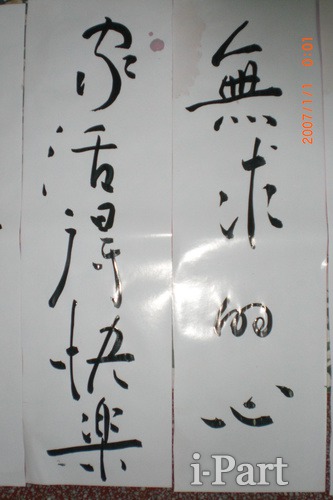 無求的心
家活得快樂
2007/1/1 0:01
i-Part